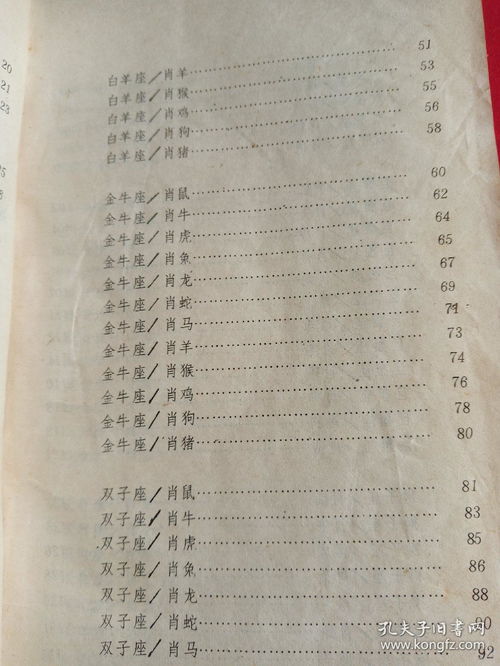 20
21
23
白羊座/肖羊……………………51
白羊座/肖猴……………………53
白羊座/肖鸡……………………55
白羊座/肖狗……………………56
白羊座/肖猪……………………58
金牛座/肖鼠……………………60
金牛座/肖牛……………………62
金牛座/肖虎……………………64
金牛座/肖兔……………………65
金牛座/肖龙……………………67
金牛座/肖蛇……………………69
金牛座/肖马……………………71
金牛座/肖羊……………………73
金牛座/肖猴……………………74
金牛座/肖鸡……………………76
金牛座/肖狗……………………78
金牛座/肖猪……………………80
双子座/肖鼠……………………81
双子座/肖牛……………………83
双子座/肖虎……………………85
双子座/肖兔……………………86
双子座/肖龙……………………88
双子座/肖蛇……………………90
双子座/肖马……………………92
孔夫子旧书网
www.kongfz.com